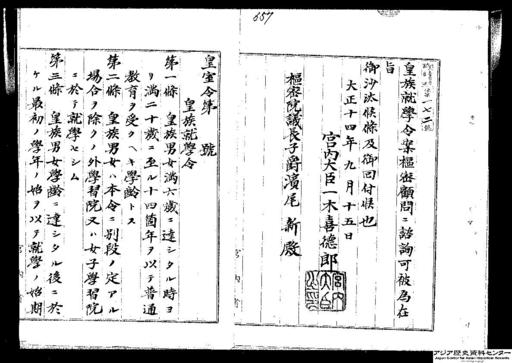 657
一七二
皇族就學令案樞密顧問ニ諮詢可被為在
旨
御沙汰候條及御回付候也
大正十四年九月十五日
宮内大臣一木喜德郎
樞密院議長子爵濱尾新殿
皇室令第　號
皇族就學令
第一條　皇族男女滿六歲ニ達シタル時ヨ
リ滿二十歲ニ至ル十四箇年ヲ以テ普通
教育ヲ受クヘキ學齡トス
第二條　皇族男女ハ本令ニ別段ノ定アル
場合ヲ除クノ外學習院又ハ女子學習院
ニ於テ就學セシム
第三條　皇族男女學齡ニ達シタル後ニ於
ケル最初ノ學年ノ始ヲ以テ就學ノ始期
宮内省
アジア歴史資料センター
Japan Center for Asian Historical Records